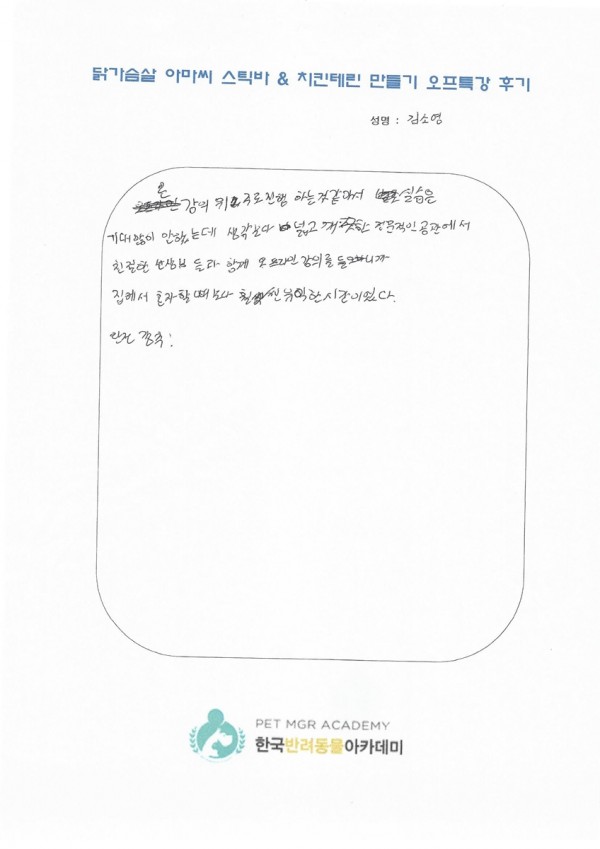 닭가슴살 아마씨 스틱바 & 치킨테린 만들기 오프특강 후기
성명 : 김소영
온 강의 위주로진행 하는것같아서 실습은
기대많이 안했는데 생각보다 넓고 깨끗한 전문적인 공간에서
친절한 선생님 들과 함께 오프라인 강의를 들으니까
집에서 혼자할 때보다 훨씬 유익한 시간이었다.
완전 강추!
PET MGR ACADEMY
한국반려동물아카데미